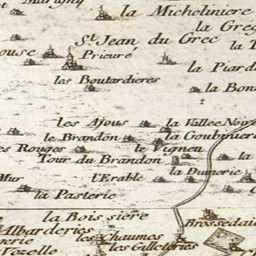 la Micheliniere
la Greg
St. Jean du Grec
la T
ouse
Prieuré
la Piard
les Boutardieres
la Bon
les Ajous
la Vallée Noire
le Brandon
la Goubiniere
es Rouges
le Vigneu
Tour du Brandon
la
la Dunerie
Mur
l'Erable
la Pasterie
la Boissiere
Brossedai
Albarderies
erie
les Chaumes
Vozelle
les Gilleteries